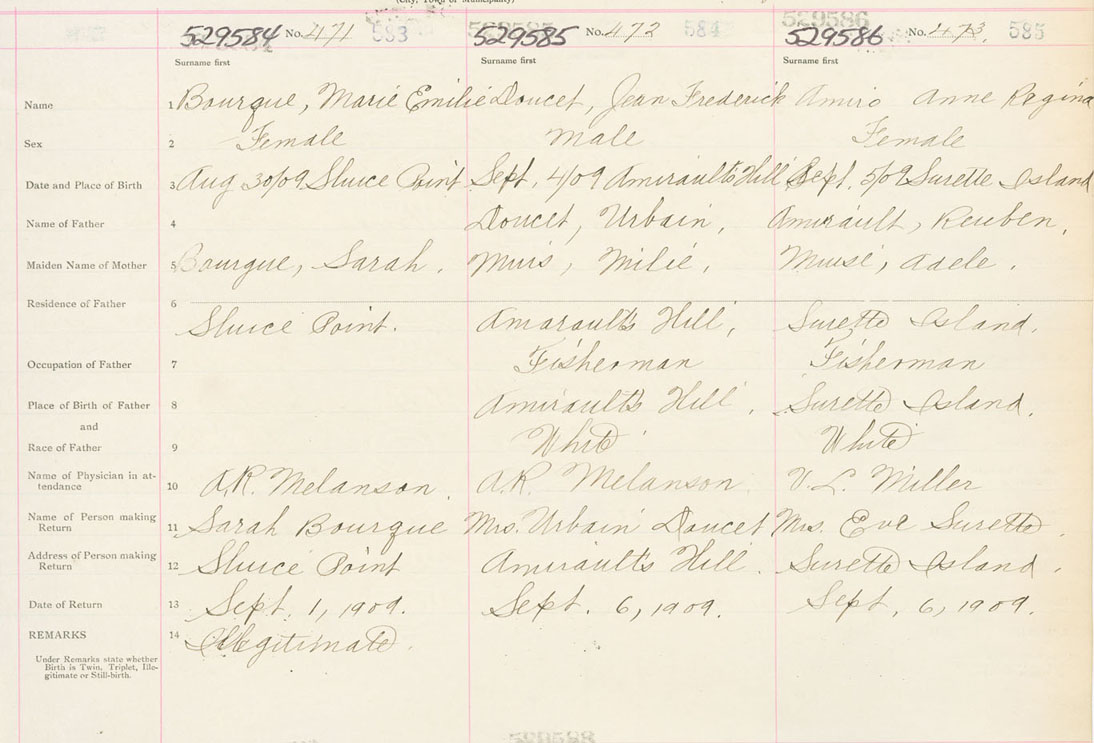 (City, Town or Municipality)
529584 No. 471 583 529585 No. 472 584 529586 529586 No. 473. 585
Surname first Surname first Surname first
Name 1 Bourque, Marie Emilie Doucet, Jean Frederick Amiro Anne Regina
Sex 2 Female Male Female
Date and Place of Birth 3 Aug 30/09 Sluice Point Sept. 4/09 Amirault's Hill Sept. 5/09 Surette Island
Name of Father 4 Doucet, Urbain, Amirault, Reuben,
Maiden Name of Mother 5 Bourque, Sarah. Muis, Milie, Muise, Adele.
Residence of Father 6 Sluice Point. Amarault's Hill, Surette Island.
Occupation of Father 7 Fisherman Fisherman
Place of Birth of Father 8 Amirault's Hill. Surette Island.
and
Race of Father 9 White White
Name of Physician in at-
tendance 10 A.R. Melanson. A.R. Melanson. V. L. Miller
Name of Person making
Return 11 Sarah Bourque Mrs. Urbain Doucet Mrs. Eve Surette.
Address of Person making
Return 12 Sluice Point Amirault's Hill. Surette Island.
Date of Return 13 Sept. 1, 1909. Sept. 6, 1909. Sept. 6, 1909.
REMARKS 14 Illegitimate.
Under Remarks state whether
Birth is Twin, Triplet, Ille-
gitimate or Still-birth.
529588